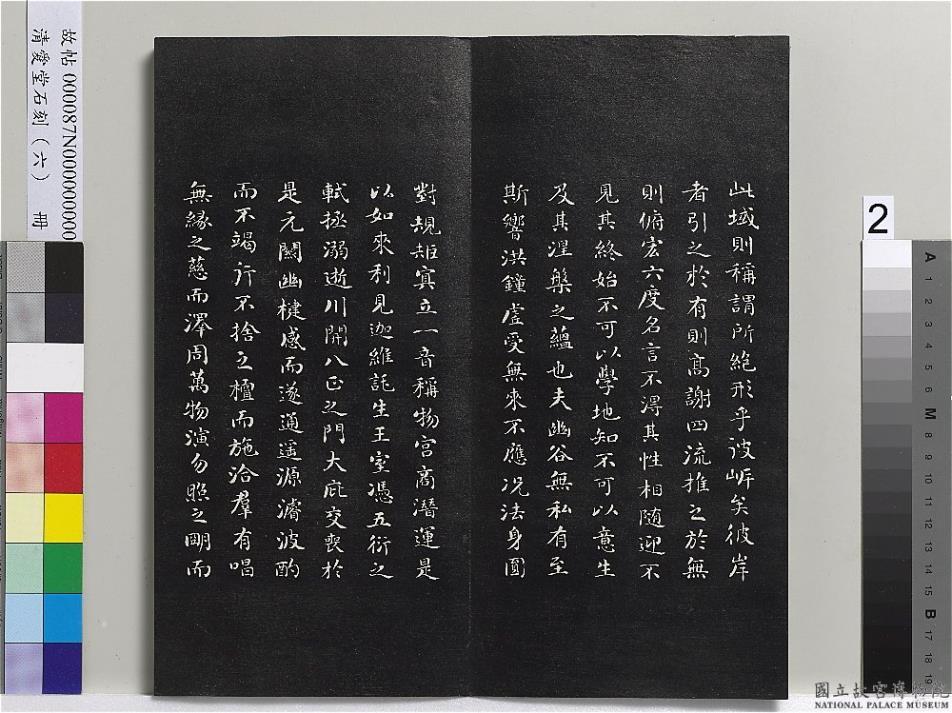 此域則稱謂所絶形乎彼岸矣彼岸
者引之於有則髙謝四流推之於無
則俯宏六度名言不得其性相随迎不
見其終始不可以學地知不可以意生
及其涅槃之蘊也夫幽谷無私有至
斯響洪鐘虛受無來不應况法身圓
對規矩冥立一音稱物宫商潛運是
以如來利見迦維託生王室憑五衍之
軾拯溺逝川開八正之門大庇交喪於
是元關幽楗感而遂通遥源濬波酌
而不竭行不捨之檀而施洽羣有唱
無緣之慈而澤周萬物演勿照之明而
故帖 000087N000000000
清愛堂石刻（六） 冊
2
A 1 2 3 4 5 6 M 8 9 10 11 12 13 14 15 B 17 18 19
國立故宮博物院
NATIONAL PALACE MUSEUM